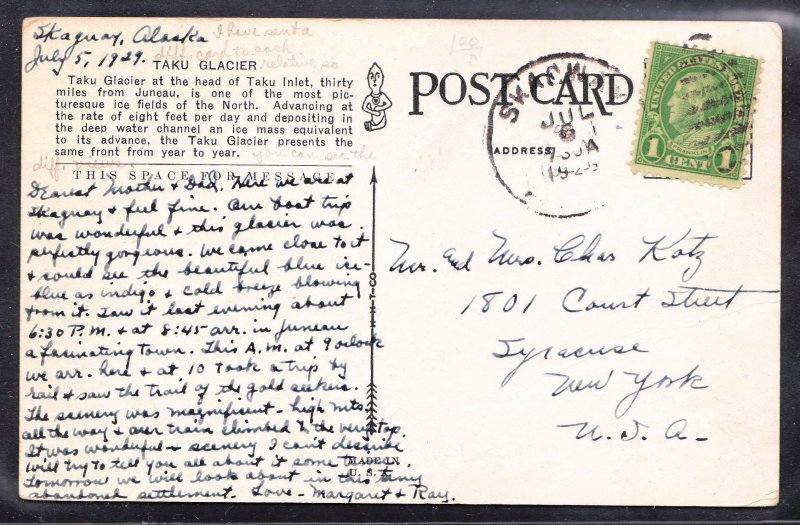 Skaguay, Alaska
July 5, 1929.
I have sent a
diff. card to each
relative so
you can see the
diff. views.
TAKU GLACIER
Taku Glacier at the head of Taku Inlet, thirty
miles from Juneau, is one of the most pic-
turesque ice fields of the North. Advancing at
the rate of eight feet per day and depositing in
the deep water channel an ice mass equivalent
to its advance, the Taku Glacier presents the
same front from year to year.
THIS SPACE FOR MESSAGE
Dearest Mother & Dad, Here we are at
Skaguay & feel fine. Our boat trip
was wonderful & this glacier was
perfectly gorgeous. We came close to it
& could see the beautiful blue ice-
blue as indigo & cold breeze blowing
from it. Saw it last evening about
6:30 P.M. & at 8:45 arr. in Juneau
a fascinating town. This A.M. at 9 oclock
we arr. here & at 10 took a trip by
rail & saw the trail of the gold seekers.
The scenery was magnificent - high mts.
all the way & our train climbed to the very top.
It was wonderful - scenery I can't describe
will try to tell you all about it some time.
Tomorrow we will look about in this tiny
abandoned settlement. Love - Margaret & Ray.
H-H-T-CO
MADE IN
U. S. A.
POST CARD
ADDRESS
100
SKAGWAY
JUL
1929
UNITED STATES POSTAGE
FRANKLIN
1 CENT 1
Mr. and Mrs. Chas Kotz
1801 Court Street
Syracuse
New York
U. S. A.